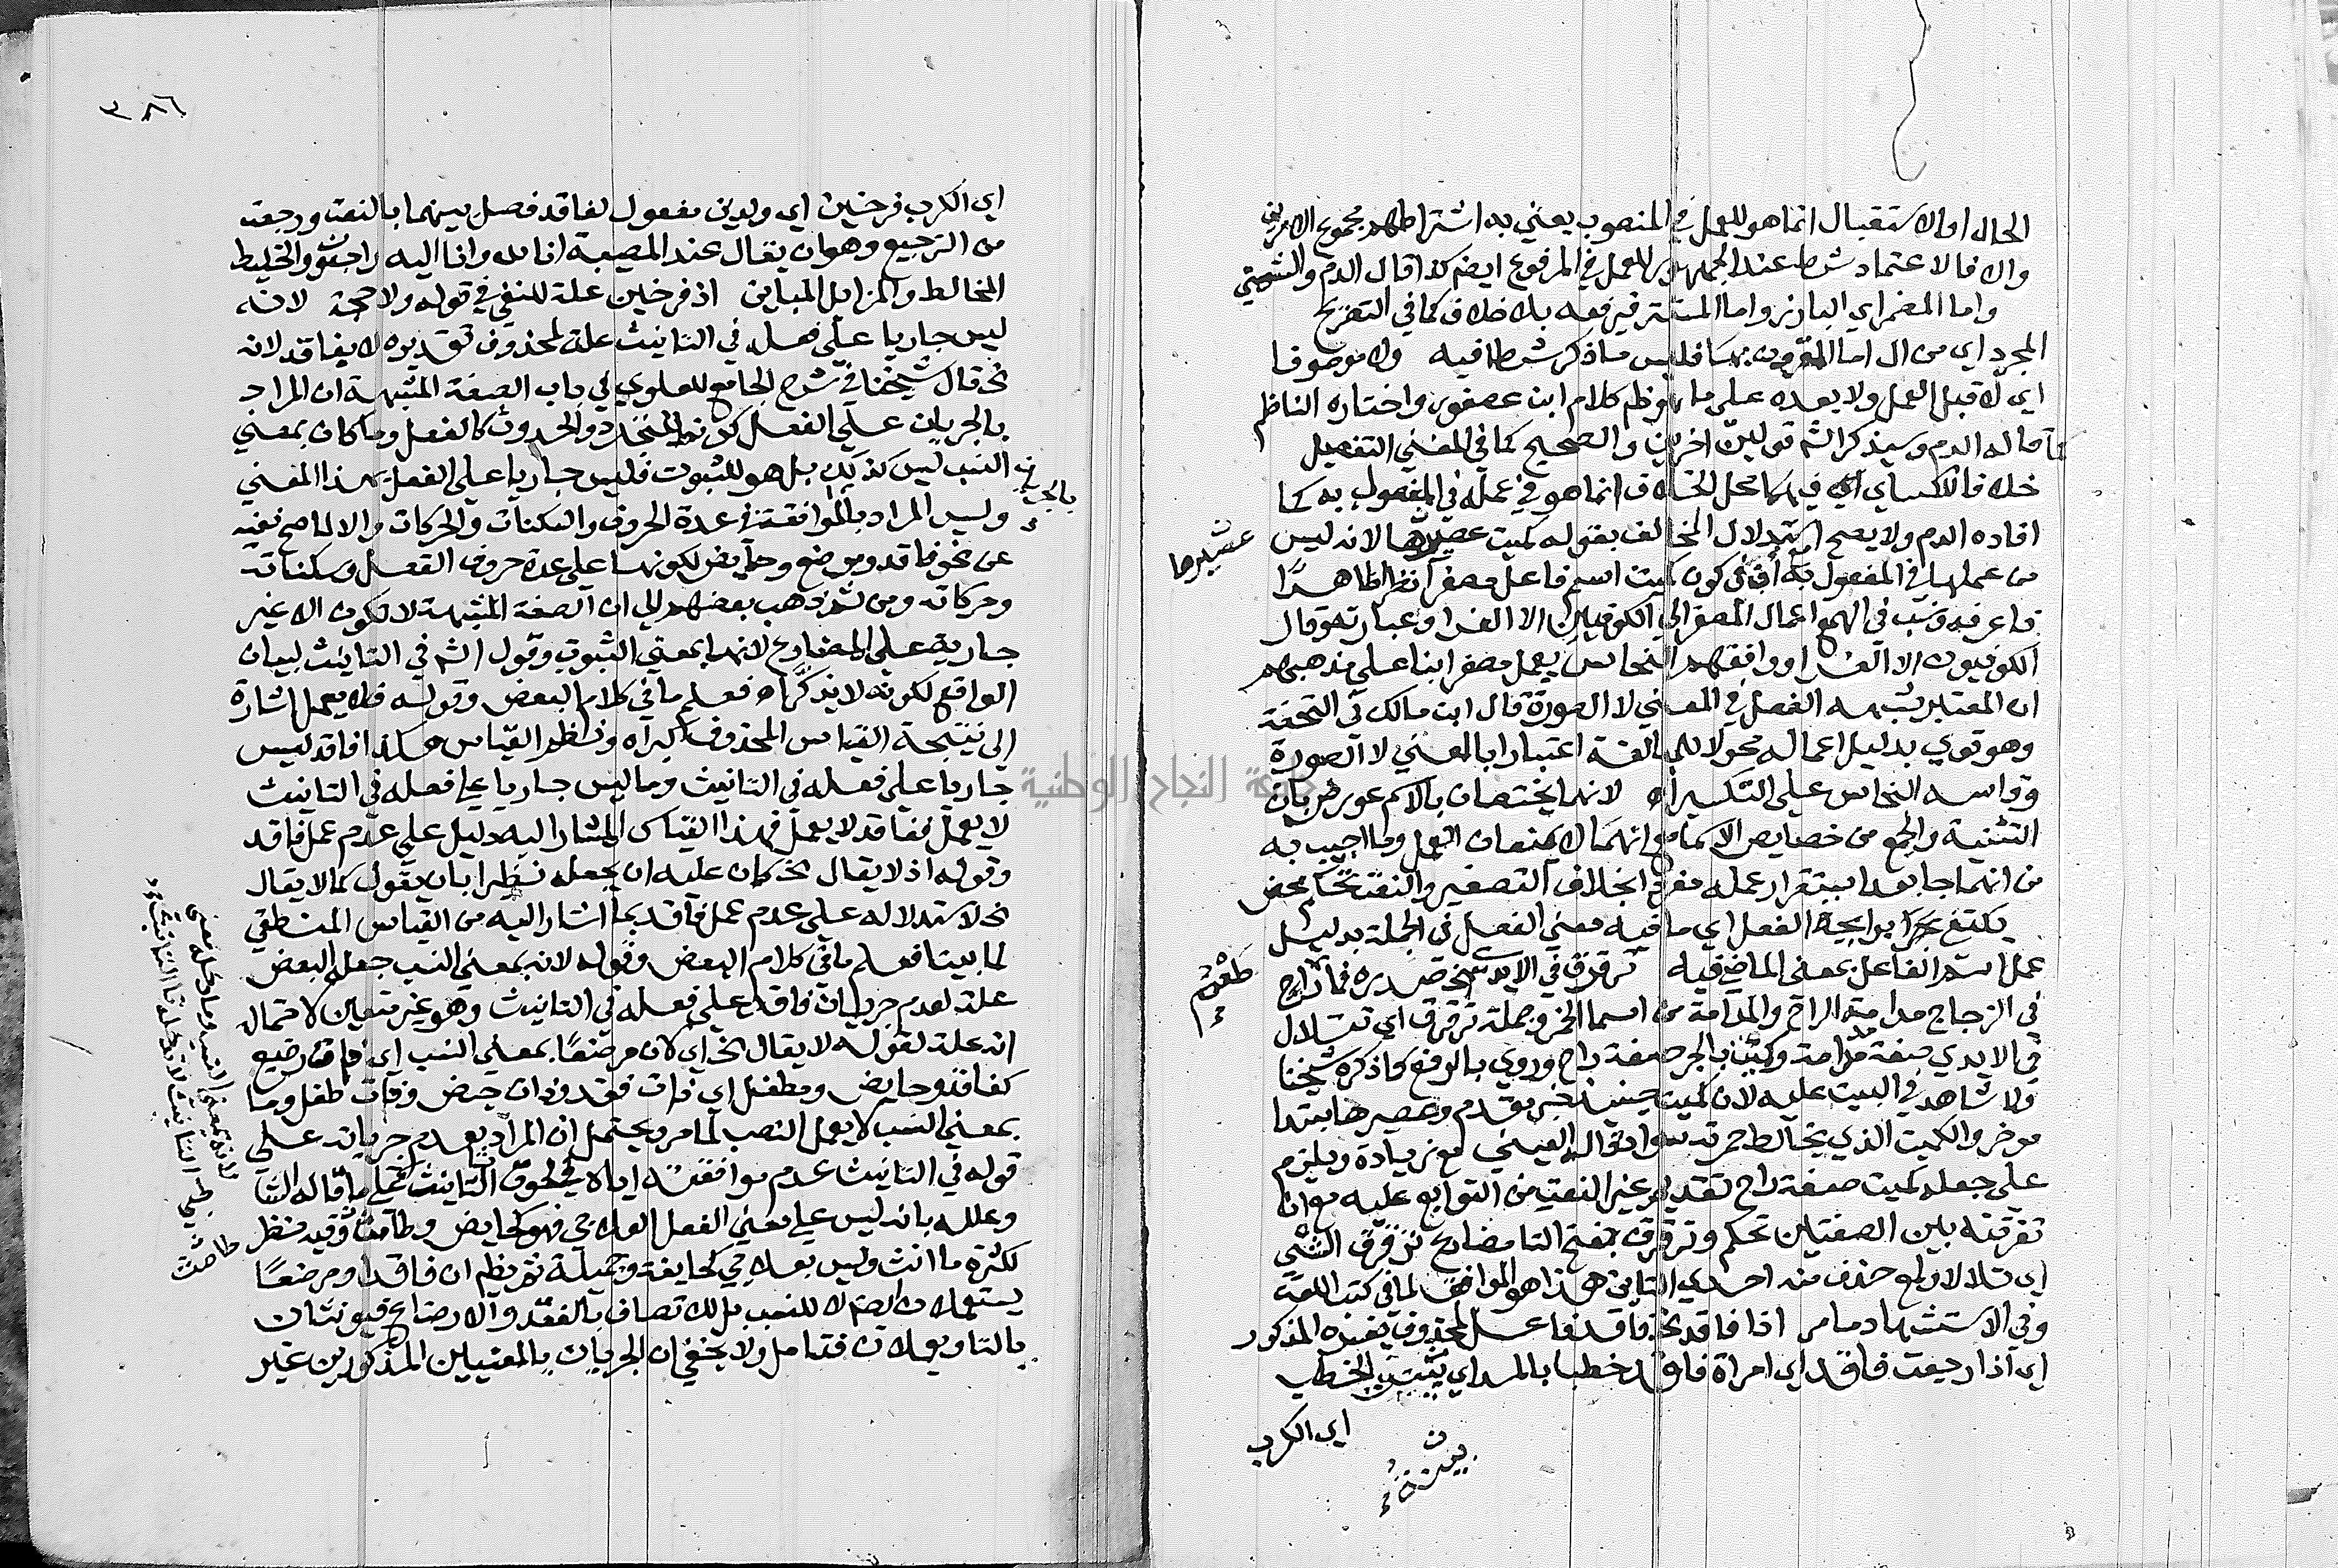 الحال او الاستقبال انما هو للعمل في المنصوب يعني به اشتراطهم مجموع الامرين
والا فالاعتماد شرط عند الجمهور للعمل في المرفوع ايضا كذا قال الدم والشمني
واما المضمر اي البارز واما المستتر فيرفعه بلا خلاف كما في التصريح
المجرد اي من ال اما المقرون بها فليس ما ذكر شرطا فيه ولا موصوفا
اي لا قبل العمل ولا بعده على ما هو ظم كلام ابن عصفور واختاره الناظم
كما قاله الدم وسيذكر الشم قولين اخرين والصحيح كما في المغني التفصيل
خلافا للكساي اي فيهما محل الخلاف انما هو في عمله في المفعول به كما
افاده الدم ولا يصح استدلال المخالف بقوله كميت عصيرها لانه ليس
من عملها في المفعول به اف في كون كميت اسم فاعل مصغرا نظرا ظاهرا
فاعرفه ونسب في الهمع اعمال المصغر الى الكوفيين الا الفرا وعبارته وقال
الكوفيون الا الفرا ووافقهم النحاس يعمل مصغرا بنا على مذهبهم
ان المعتبر شبهه الفعل في المعني لا الصورة قال ابن مالك في التحفة
وهو قوي بدليل اعماله محولا للمبالغة اعتبارا بالمعني لا الصورة
وقواسه النحاس على التكسير اه لانهما يختصان بالاسم عورض بان
التثنية والجمع من خصايص الاسما مع انهما لا يمنعان العمل وما اجيب به
من انهما جا بعد استقرار عمله مفرد ابخلاف التصغير والنعت تحكم محض
يكتفي برايحة الفعل اي ما فيه معني الفعل في الجملة بدليل
عمل اسم الفاعل بمعنى الماضي فيه ترقرق في الايدي الخ صدره فما راح
في الزجاج مدامة الراح والمدامة من اسما الخمر وجملة ترقرق اي تتلالا
في الايدي صفة مدامة وكميت بالجر صفة راح وروي بالرفع كما ذكره شيخنا
ولا شاهد في البيت عليه لان كميت حينئذ خبر مقدم وعصيرها مبتدا
موخر والكميت الذي يخالط حمرته سواد قاله العيني مع زيادة ويلزم
على جعله كميت صفة راح تقديم غير النعت من التوابع عليه مع ان
تفرقته بين الصفتين تحكم وترقرق بفتح التا مضارع ترقرق الشي
اي تلالا ولمع حذف منه احدي التاين هذا هو الموافق لما في كتب اللغة
وفي الاستشهاد ما مر اذا فاقد الخ فاقد فاعل لمحذوف يفسره المذكور
اي اذا رجعت فاقد اي امراة فاقد خطبا بالمد اي بينت الخطب
اي الكرب
عصيرها
بينة
٣٨٦
اي الكرب فرخين اي ولدين مفعول لفاقد فصل بينهما بالنعت ورجعت
من الترجيع وهو ان يقال عند المصيبة انا لله وانا اليه راجعون والخليط
المخالط والمزايل المباين اذ فرخين علة للنفي في قوله ولا حجة لانه
ليس جاريا على فعله في التانيث علة لمحذوف تقديره لا بفاقد لانه
الخ قال شيخنا في شرح الجامع للعلوي في باب الصفة المشبهة ان المراد
بالجريان على الفعل كونه للتجدد والحدوث كالفعل وما كان بمعني
النسب ليس كذلك بل هو للثبوت فليس جاريا على الفعل بهذا المعني
وليس المراد بالموافقة في عدة الحروف والسكنات والحركات والا لما صح نفيه
عن نحو فاقد ومرضع وحايض لكونها على عدة حروف الفعل وسكناته
وحركاته ومن ثم ذهب بعضهم الى ان الصفة المشبهة لا تكون الا غير
جارية على المضارع لانها بمعني الثبوت وقول الشم في التانيث لبيان
الواقع لكونه لا يذكر اه فعلم ما في كلام البعض وقوله فلا يعمل اشارة
الى نتيجة القياس المحذوف كبراه ونظم القياس هكذا فاقد ليس
جاريا على فعله في التانيث وما ليس جاريا على فعله في التانيث
لا يعمل ففاقد لا يعمل فهذا القياس المشار اليه دليل على عدم عمل فاقد
وقوله اذ لا يقال الخ كان عليه ان يجعله نظيرا بان يقول كما لا يقال
الخ لاستدلاله على عدم عمل فاقد بما اشار اليه من القياس المنطقي
لما بينا فعلم ما في كلام البعض وقوله لانه بمعني النسب جعله البعض
علة لعدم جريان فاقد على فعله في التانيث وهو غير متعين لاحتمال
انه علة لقوله لا يقال الخ اي لان مرضعا بمعني النسب اي ذات رضيع
كفاقد وحايض ومطفل اي ذات فقد وذات حيض وذات طفل وما
بمعني النسب لا يعمل النصب لما مر ويحتمل ان المراد بعدم جريانه على
قوله في التانيث عدم موافقته اياه في لحوق التانيث على ما قاله الشا
وعلله بانه ليس على معني الفعل العلاجي فهو كحايض وطامث وفيه نظر
لكثرة ما انث وليس بعلاجي كحايفة وجميلة ثم يظهر ان فاقدا ومرضعا
يستعملان ايضا لا للنسب بل للاتصاف بالفقد والارضاع فيونثان
بالتا ويعملان فتامل ولا يخفي ان الجريان بالمعنيين المذكورين غير
بالجريان